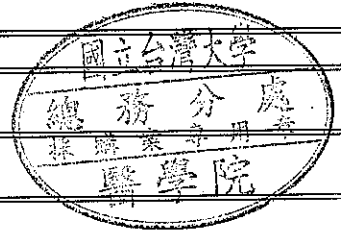 國立台灣大學
總務分處
採購業專用章
醫學院